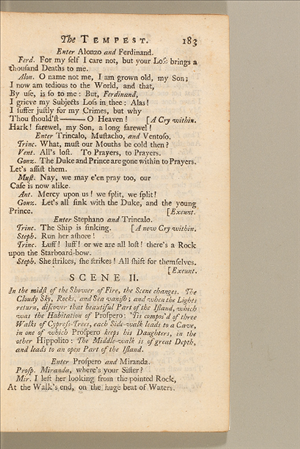 The TEMPEST. 183
Enter Alonzo and Ferdinand.
Ferd. For my self I care not, but your Loss brings a
thousand Deaths to me.
Alon. O name not me, I am grown old, my Son;
I now am tedious to the World, and that,
By use, is so to me: But, Ferdinand,
I grieve my Subjects Loss in thee: Alas!
I suffer justly for my Crimes, but why
Thou should'st——— O Heaven! [A Cry within.
Hark! farewel, my Son, a long farewel!
Enter Trincalo, Mustacho, and Ventoso.
Trinc. What, must our Mouths be cold then?
Vent. All's lost. To Prayers, to Prayers.
Gonz. The Duke and Prince are gone within to Prayers.
Let's assist them.
Must. Nay, we may e'en pray too, our
Case is now alike.
Ant. Mercy upon us! we split, we split!
Gonz. Let's all sink with the Duke, and the young
Prince. [Exeunt.
Enter Stephano and Trincalo.
Trinc. The Ship is sinking. [A new Cry within.
Steph. Run her ashore!
Trinc. Luff! luff! or we are all lost! there's a Rock
upon the Starboard-bow.
Steph. She strikes, she strikes! All shift for themselves.
[Exeunt.
SCENE II.
In the midst of the Shower of Fire, the Scene changes. The
Cloudy Sky, Rocks, and Sea vanish; and when the Lights
return, discover that beautiful Part of the Island, which
was the Habitation of Prospero: 'Tis compos'd of three
Walks of Cypress-Trees, each Side-walk leads to a Cave,
in one of which Prospero keeps his Daughters, in the
other Hippolito: The Middle-walk is of great Depth,
and leads to an open Part of the Island.
Enter Prospero and Miranda.
Prosp. Miranda, where's your Sister?
Mir. I left her looking from the pointed Rock,
At the Walk's end, on the huge beat of Waters.